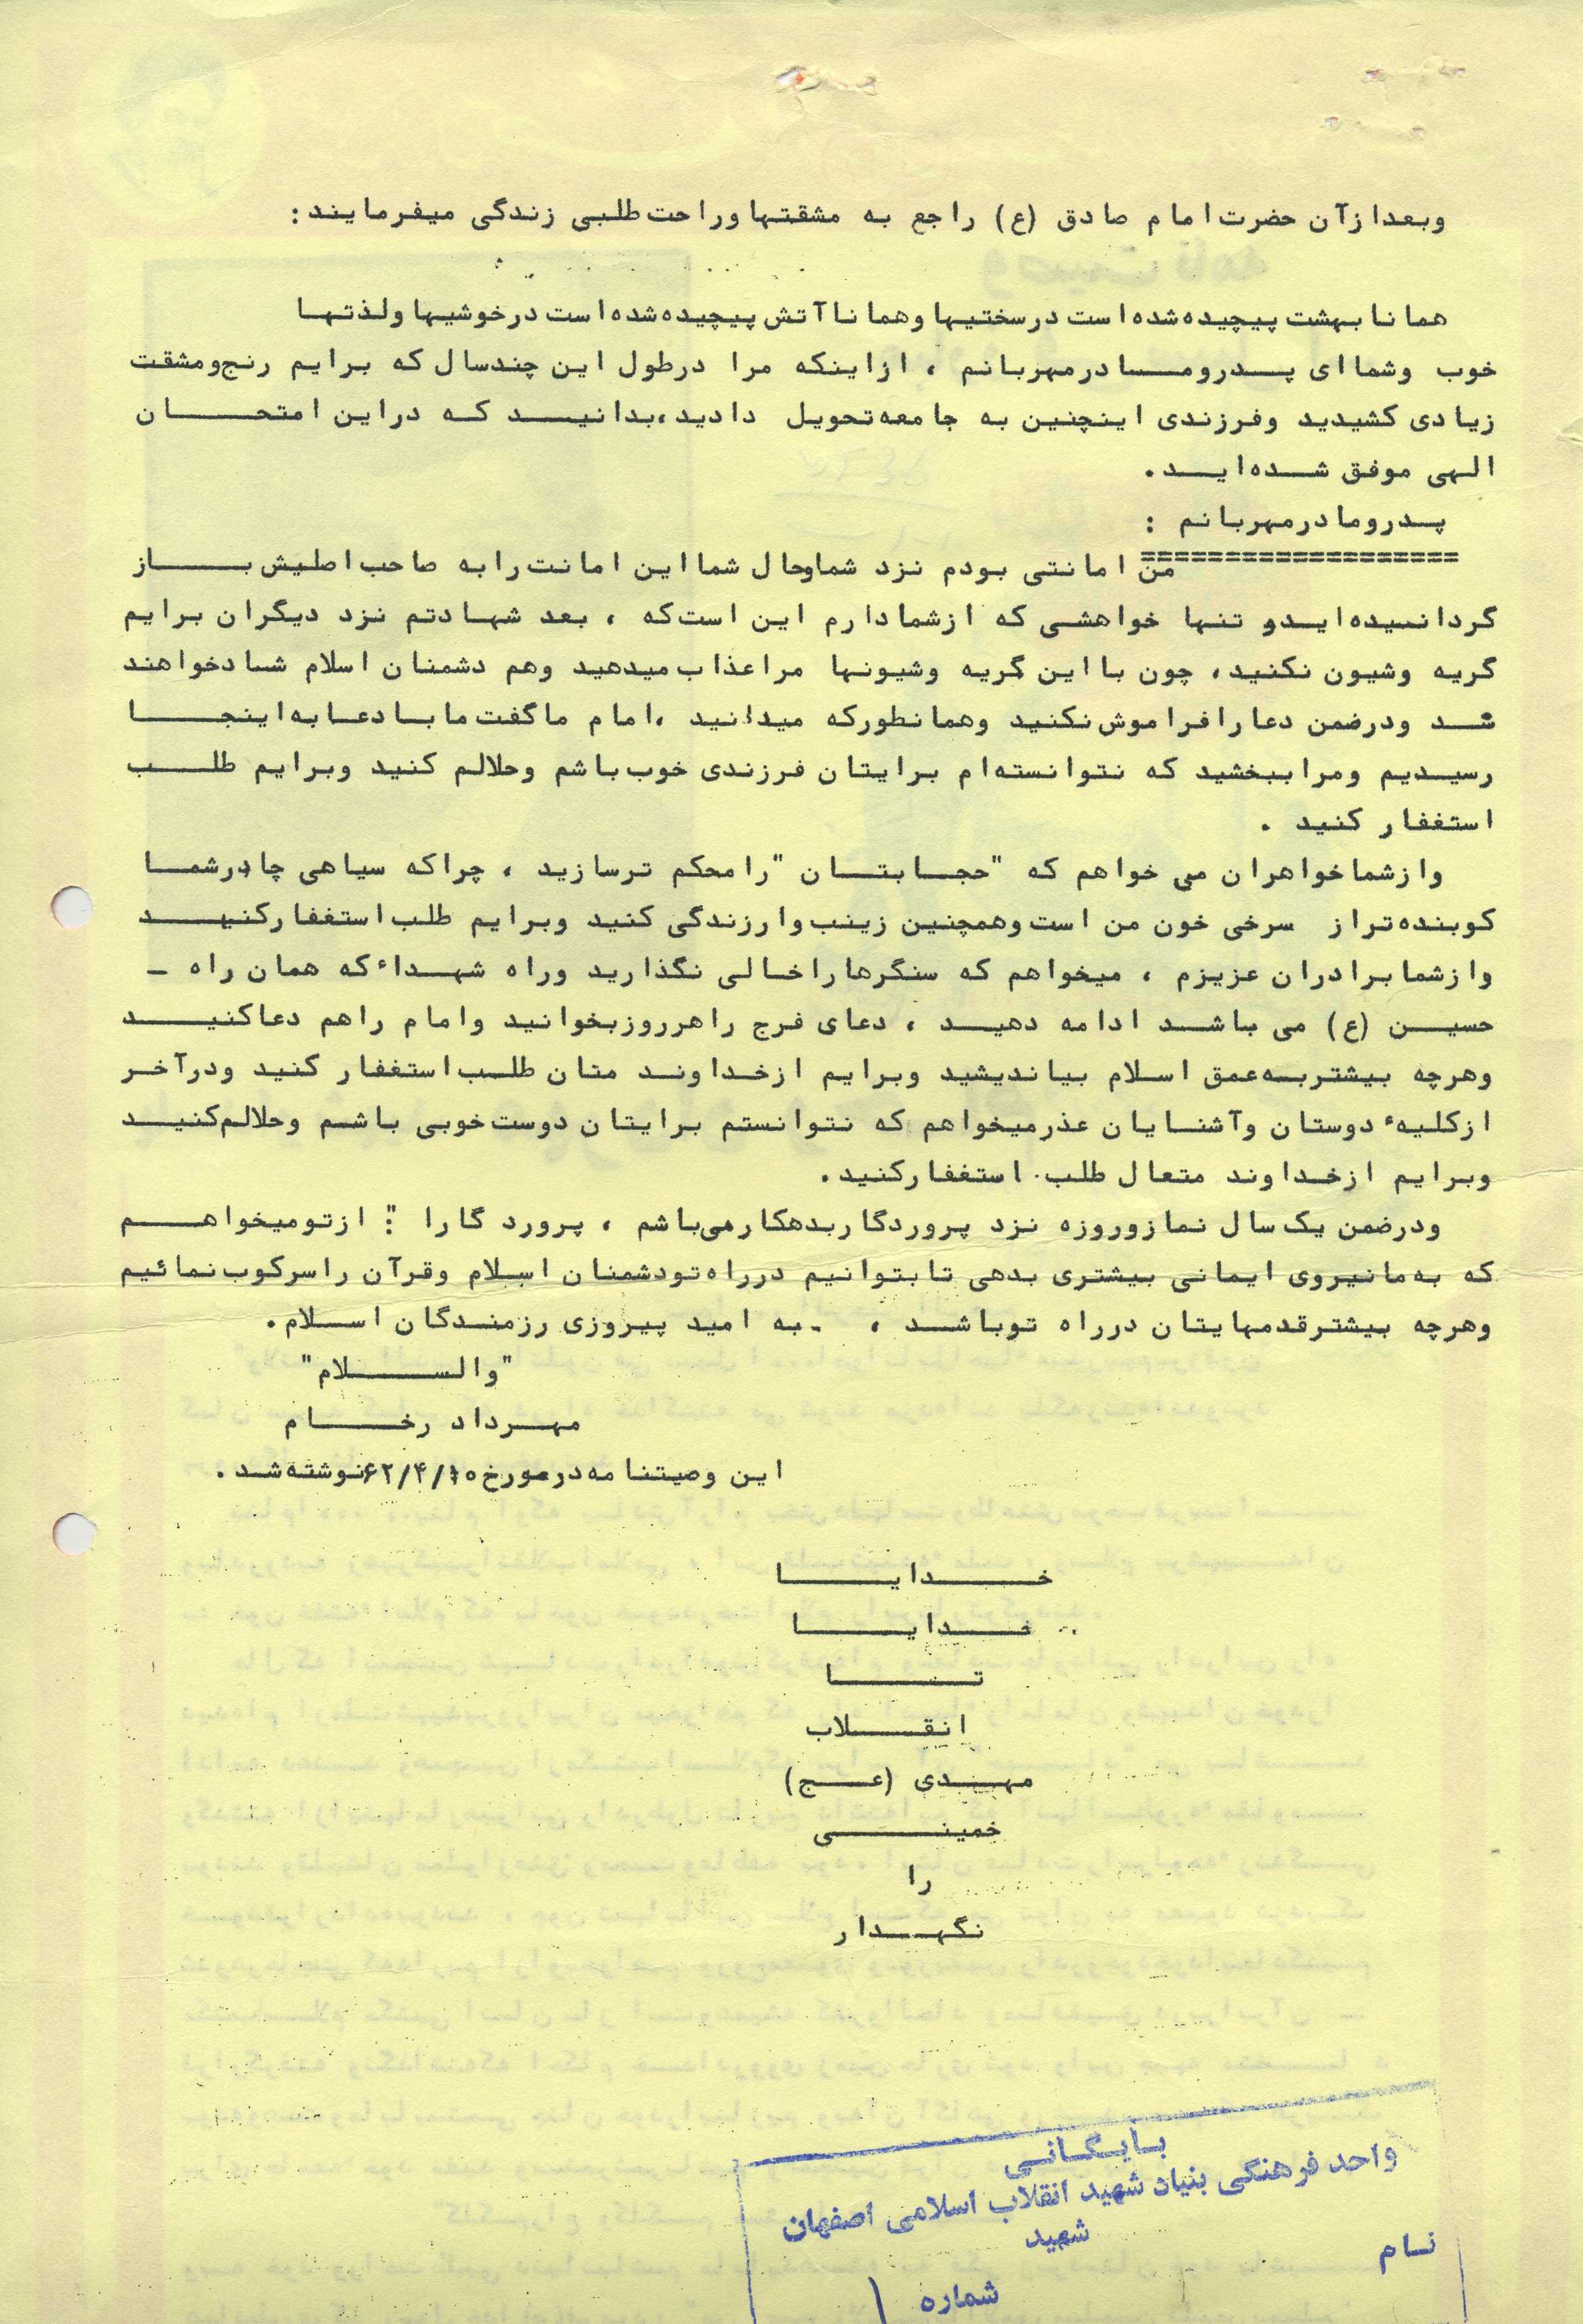 وبعدازآن حضرت امام صادق (ع) راجع به مشقتها وراحت طلبی زندگی میفرمایند:
همانا بهشت پیچیده شده است درسختیها وهمانا آتش پیچیده شده است درخوشیها ولذتها
خوب وشما ای پدرومادرمهربانم ، ازاینکه مرا درطول این چندسال که برایم رنج ومشقت
زیادی کشیدید وفرزندی اینچنین به جامعه تحویل دادید،بدانید که دراین امتحان
الهی موفق شده اید.
پدرومادرمهربانم :
===================
من امانتی بودم نزد شماوحال شما این امانت رابه صاحب اصلیش باز
گردانیده ایدو تنها خواهشی که ازشمادارم این است که ، بعد شهادتم نزد دیگران برایم
گریه وشیون نکنید، چون با این گریه وشیونها مراعذاب میدهید وهم دشمنان اسلام شادخواهند
شد ودرضمن دعا رافراموش نکنید وهمانطورکه میدانید ،امام ماگفت ما با دعا به اینجا
رسیدیم ومرا ببخشید که نتوانسته ام برایتان فرزندی خوب باشم وحلالم کنید وبرایم طلب
استغفار کنید .
وازشماخواهران می خواهم که "حجابتان "رامحکم ترسازید ، چراکه سیاهی چادرشما
کوبنده تراز سرخی خون من است وهمچنین زینب وارزندگی کنید وبرایم طلب استغفارکنید
وازشمابرادران عزیزم ، میخواهم که سنگرها راخالی نگذارید وراه شهداء که همان راه -
حسین (ع) می باشد ادامه دهید ، دعای فرج راهرروزبخوانید وامام راهم دعاکنید
وهرچه بیشتربه عمق اسلام بیاندیشید وبرایم ازخداوند منان طلب استغفار کنید ودرآخر
ازکلیهء دوستان وآشنایان عذرمیخواهم که نتوانستم برایتان دوست خوبی باشم وحلالم کنید
وبرایم ازخداوند متعال طلب استغفارکنید.
ودرضمن یک سال نمازوروزه نزد پروردگاربدهکارمی باشم ، پرورد گارا : ازتومیخواهم
که به مانیروی ایمانی بیشتری بدهی تابتوانیم درراه تودشمنان اسلام وقرآن راسرکوب نمائیم
وهرچه بیشترقدمهایتان درراه توباشد ، .به امید پیروزی رزمندگان اسلام.
"والسلام"
مهرداد رخام
این وصیتنامه درمورخ ۶۲/۴/۱۰نوشته شد .
خدایا
خدایا
تا
انقلاب
مهدی (عج)
خمینی
را
نگهدار
بایگانی
واحد فرهنگی بنیاد شهید انقلاب اسلامی اصفهان
شهید
نام
شماره